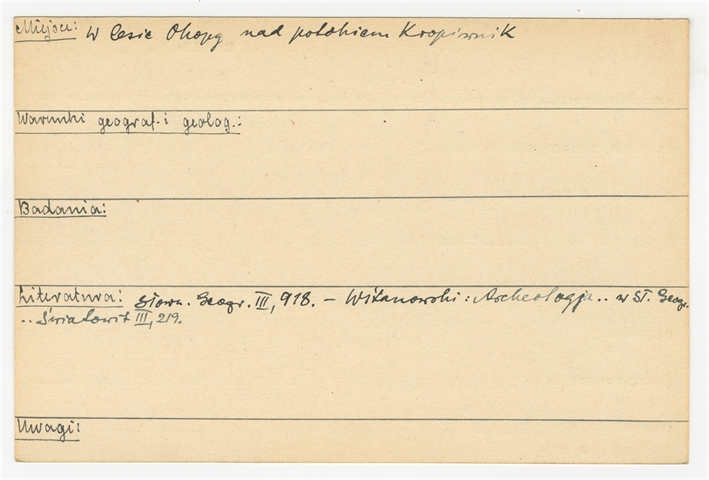 Miejsce: W lesie Okopy nad potokiem Kropiwnik
Warunki geograf. i geolog.:
Badania:
Literatura: Słown. Geogr. III, 918. – Witanowski: Archeologja .. w Sł. Geogr.
.. Światowit III, 219.
Uwagi: